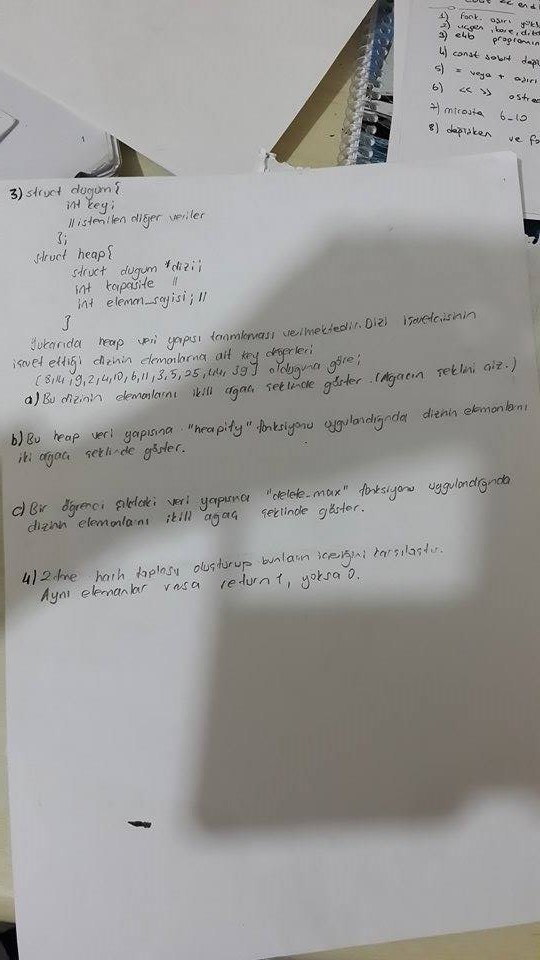 1) fonk. aşırı yükl
2) üçgen, kare, dikd
3) ekb programın
4) const sabit değiş
5) = veya + aşırı
6) << >> ostrea
7) mirasta 6-10
8) değişken ve fo
3) struct dugum{
int key;
//istenilen diğer veriler
};
struct heap{
struct dugum *dizi;
int kapasite //
int eleman_sayisi; //
}
Yukarıda heap veri yapısı tanımlaması verilmektedir. Dizi işaretçisinin
işaret ettiği dizinin elemanlarına ait key değerleri
9, 2, 4, 10, 6, 11, 3, 5, 25, 44, 39 olduğuna göre;
a) Bu dizinin elemanlarını ikili ağaç şeklinde göster. (Ağacın şeklini çiz.)
b) Bu heap veri yapısına "heapify" fonksiyonu uygulandığında dizinin elemanlarını
iki ağaç şeklinde göster.
c) Bir öğrenci şıktaki veri yapısına "delete_max" fonksiyonu uygulandığında
dizinin elemanlarını ikili ağaç şeklinde göster.
4) 2 tane hash taplosu oluşturup bunların içeriğini karşılaştır.
Aynı elemanlar varsa return 1, yoksa 0.